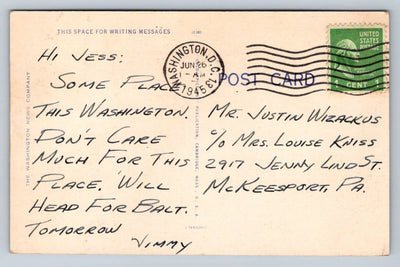 THIS SPACE FOR WRITING MESSAGES
HI JESS:
SOME PLACE
THIS WASHINGTON.
DON'T CARE
MUCH FOR THIS
PLACE. WILL
HEAD FOR BALT.
TOMORROW
JIMMY
THE WASHINGTON NEWS COMPANY
WASHINGTON, D.C.
JUN 26
AM
1945
POST CARD
UNITED
STATES
POSTAGE
1 CENT
MR. JUSTIN WIZACKUS
C/O MRS. LOUISE KNISS
2917 JENNY LIND ST.
MCKEESPORT, PA.